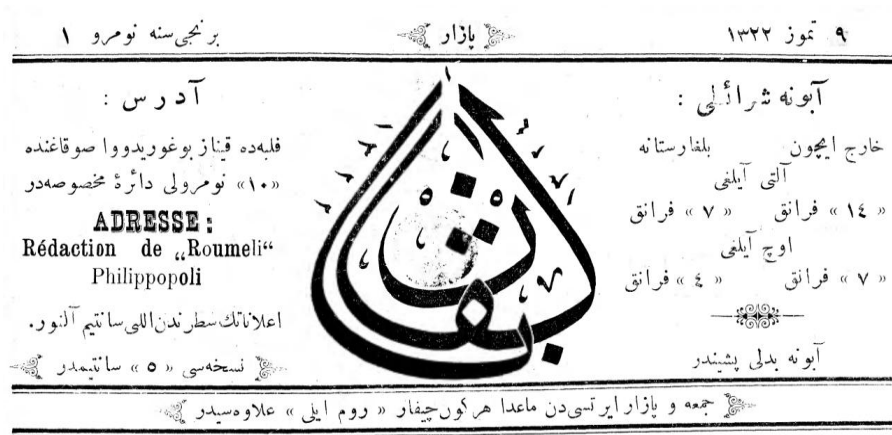 ٩ تموز ١٣٢٢
پازار
برنجی سنه نومرو ١
آبونه شرائطی :
خارج ایچون بلغارستانه
آلتی آیلغی
« ١٤ » فرانق « ٧ » فرانق
اوچ آیلغی
« ٧ » فرانق « ٤ » فرانق
آبونه بدلی پشیندر
آدرس :
فلبه‌ده قیناز بوغوریدووا صوقاغنده
«١٠» نومرولی دائرهٔ مخصوصه‌در
ADRESSE :
Rédaction de „Roumeli“
Philippopoli
اعلاناتك سطرندن اللی سانتیم آلنور.
نسخه‌سی « ٥ » سانتیمدر
جمعه و پازار ایرتسی‌دن ماعدا هر كون چیقار « روم ایلی » علاوه‌سیدر